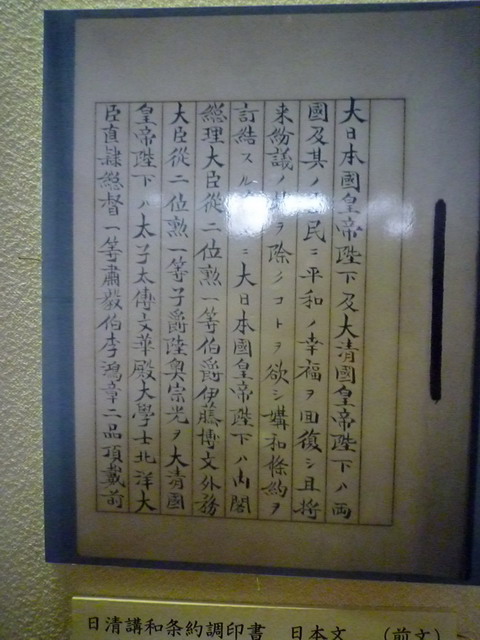 大日本國皇帝陛下及大清國皇帝陛下ハ両
國及其ノ民ニ平和ノ幸福ヲ回復シ且將
来紛議ノヲ除クコトヲ欲シ媾和條約ヲ
訂結スルニ大日本國皇帝陛下ハ内閣
總理大臣從二位勲一等伯爵伊藤博文外務
大臣從二位勲一等子爵陸奥宗光ヲ大清國
皇帝陛下ハ太子太傅文華殿大學士北洋大
臣直隷總督一等肅毅伯李鴻章二品頂戴前
日清講和条約調印書 日本文 (前文)